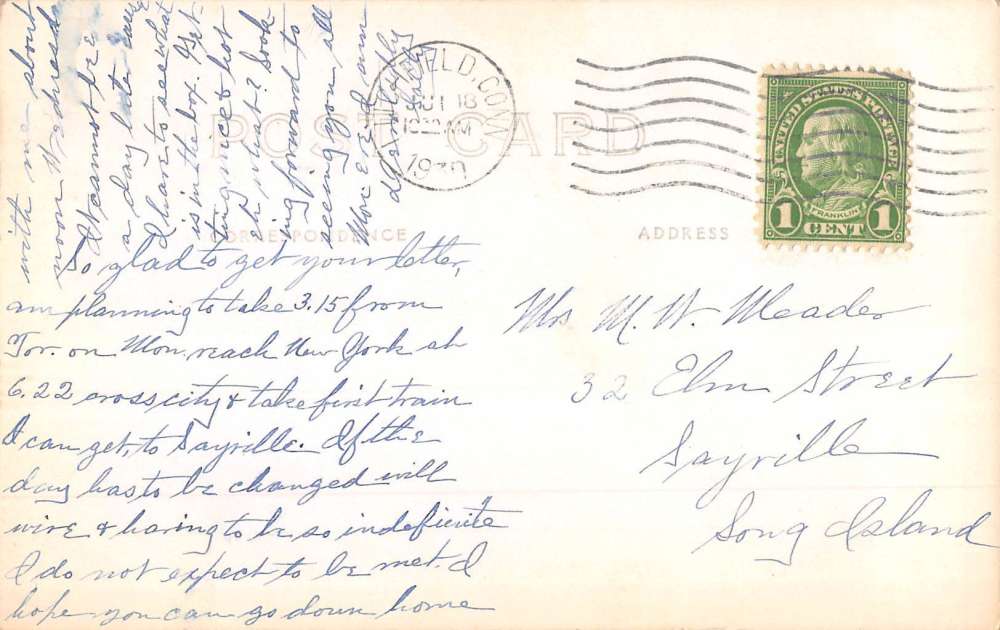 POST CARD
CORRESPONDENCE
ADDRESS
FIELD. CONN
18
AM
1930
UNITED STATES POSTAGE
FRANKLIN
1 CENT 1
So glad to get your letter,
am planning to take 3.15 from
Tor. on Mon, reach New York at
6.22 cross city & take first train
I can get, to Sayville. If the
day has to be changed will
wire & having to be so indefinite
I do not expect to be met. I
hope you can go down home
with me about
noon Wednesda
cannot
a day later
I want to see what
is in the box. Get-
ting nice & hot
eh what? Look-
ing forward to
seeing you all
More and
Mrs M. W. Meader
32 Elm Street
Sayville
Long Island